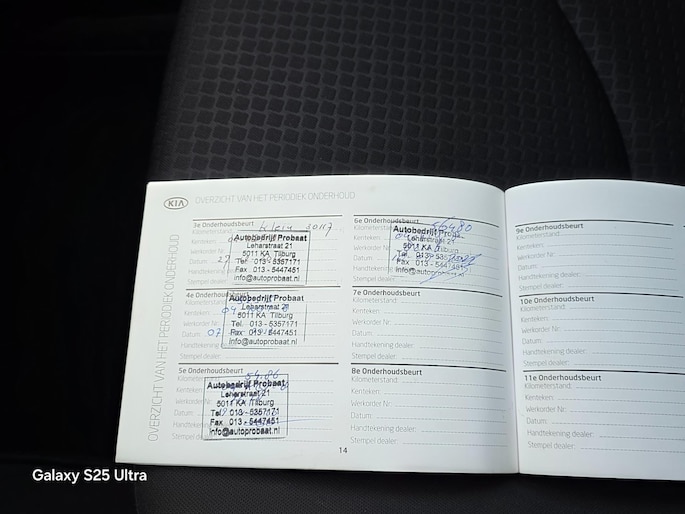 KIA OVERZICHT VAN HET PERIODIEK ONDERHOUD
OVERZICHT VAN HET PERIODIEK ONDERHOUD
3e Onderhoudsbeurt
Kilometerstand: Klein 30117
Kenteken:
Werkorder Nr:
Datum:
Handtekening
Stempel dealer:
Autobedrijf Probaat
Leharstraat 21
5011 KA Tilburg
Tel. 013 - 5357171
Fax 013 - 5447451
info@autoprobaat.nl
4e Onderhoudsbeurt
Kilometerstand
Kenteken:
Werkorder Nr:
Datum: 07
Handtekening
Stempel dealer:
Autobedrijf Probaat
Leharstraat 21
5011 KA Tilburg
Tel. 013 - 5357171
info@autoprobaat.nl
5e Onderhoudsbeurt
Kilometerstand
Kenteken:
Werkorder Nr
Datum:
Handtekening
Stempel dealer
Autobedrijf Probaat
Leharstraat 21
5011 KA Tilburg
Tel. 013 - 5357171
Fax 013 - 5447451
info@autoprobaat.nl
6e Onderhoudsbeurt
Kilometerstand
Kenteken:
Werkorder Nr:
Datum:
Handtekening dealer:
Stempel dealer:
Autobedrijf
Leharstraat 21
5011 KA
Fax 013 - 5447451
info@autoprobaat.nl
7e Onderhoudsbeurt
Kilometerstand:
Kenteken:
Werkorder Nr:
Datum:
Handtekening dealer:
Stempel dealer:
8e Onderhoudsbeurt
Kilometerstand:
Kenteken:
Werkorder Nr:
Datum:
Handtekening dealer:
Stempel dealer:
14
9e Onderhoudsbeurt
Kilometerstand:
Kenteken:
Werkorder Nr:
Datum:
Handtekening dealer:
Stempel dealer:
10e Onderhoudsbeurt
Kilometerstand:
Kenteken:
Werkorder Nr:
Datum:
Handtekening dealer:
Stempel dealer:
11e Onderhoudsbeurt
Kilometerstand:
Kenteken:
Werkorder Nr:
Datum:
Handtekening dealer:
Stempel dealer:
Galaxy S25 Ultra